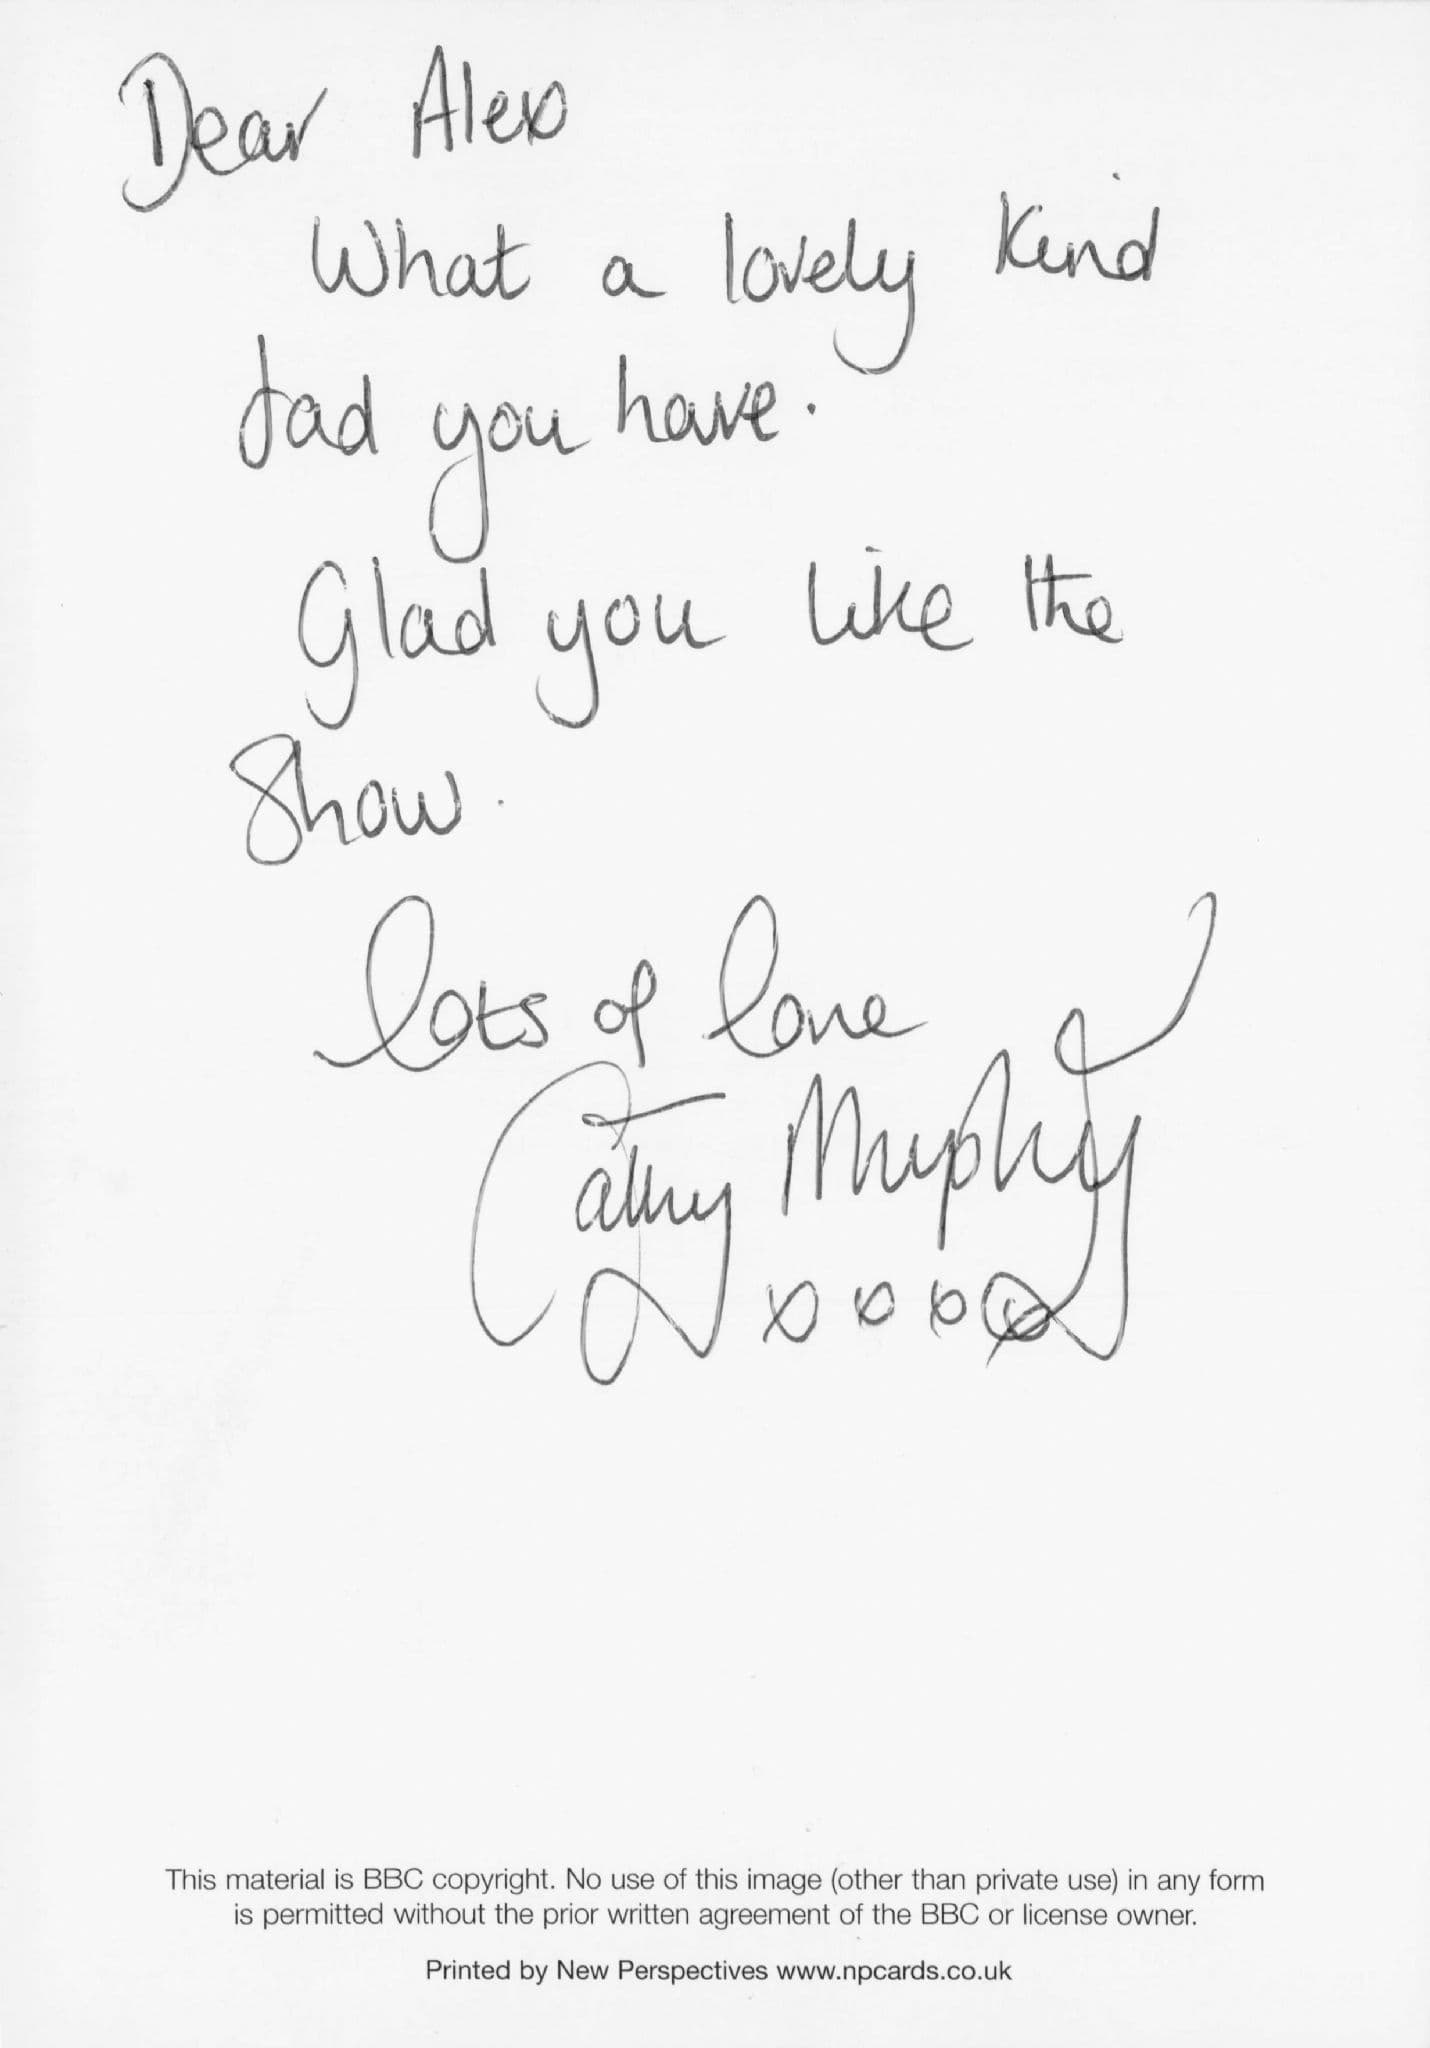 Dear Alex
What a lovely kind
dad you have.
Glad you like the
Show.
lots of love
Cathy Murphy
xxxx
This material is BBC copyright. No use of this image (other than private use) in any form
is permitted without the prior written agreement of the BBC or license owner.
Printed by New Perspectives www.npcards.co.uk